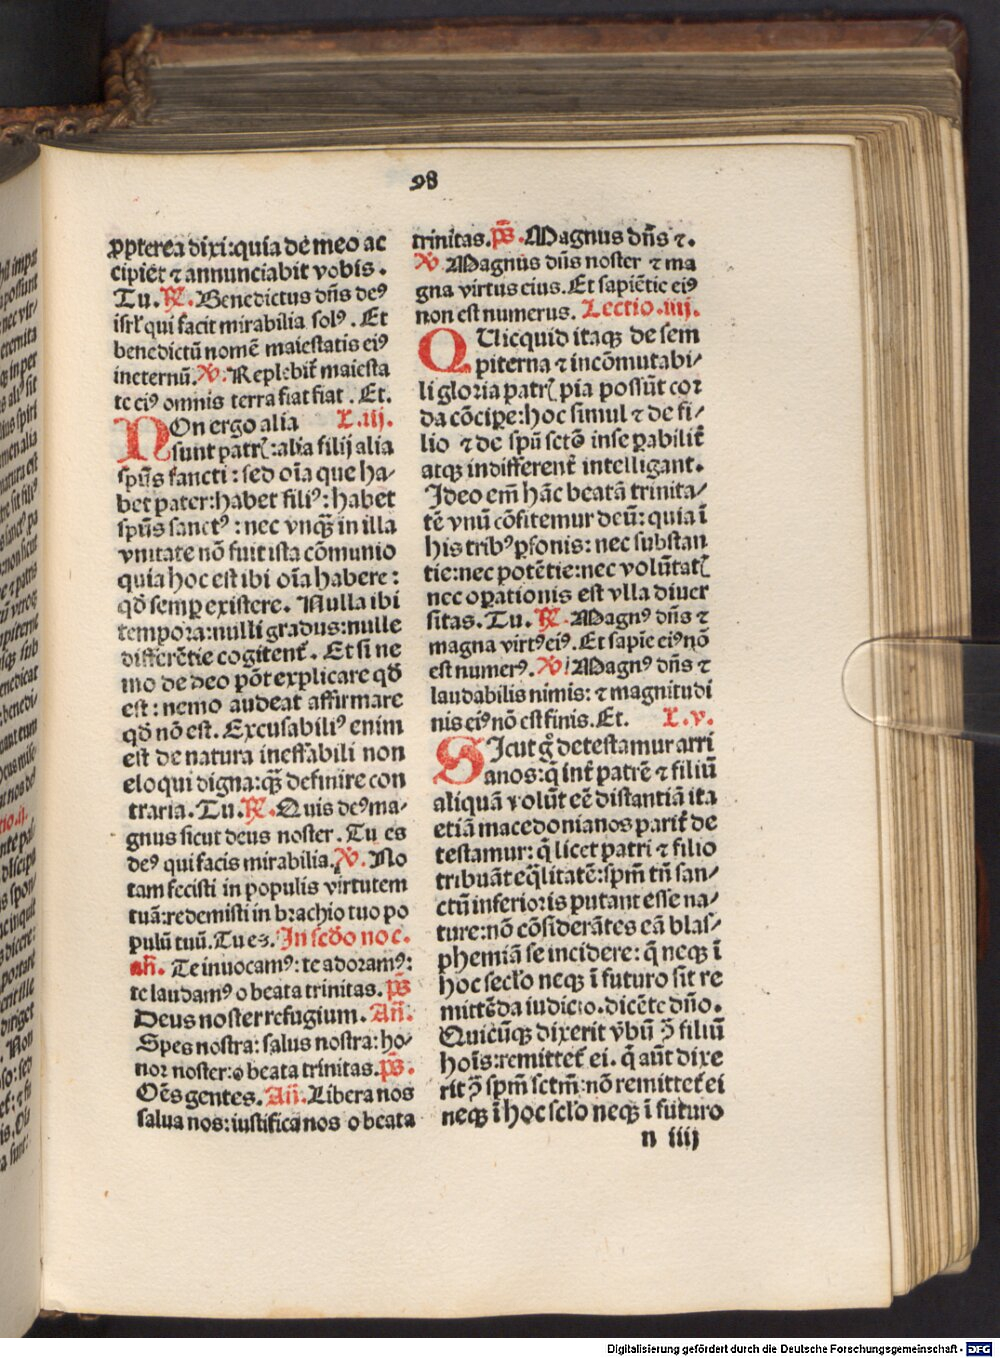 98
ꝓpterea dixi:quia de meo ac
cipiet ⁊ annunciabit vobis.
Tu. ℟. Benedictus dn̄s deꝰ
isrl' qui facit mirabilia solꝰ. Et
benedictū nomē maiestatis eiꝰ
ineternū. ℣. Replebit̄ maiesta
te eiꝰ omnis terra fiat fiat. Et.
NOn ergo alia L.iij.
sunt patrꝭ: alia filij alia
spūs sancti: sed oīa que ha-
bet pater: habet filiꝰ: habet
spūs sanctꝰ: nec vnqꝫ in illa
vnitate nō fuit ista cōmunio
quia hoc est ibi oīa habere:
qđ semꝑ existere. Nulla ibi
tempora: nulli gradus: nulle
differētie cogitent̄. Et si ne
mo de deo pōt explicare qđ
est: nemo audeat affirmare
qđ nō est. Excusabiliꝰ enim
est de natura ineffabili non
eloqui digna: qꝫ definire con
traria. Tu. ℟. Quis deꝰ ma-
gnus sicut deus noster. Tu es
deꝰ qui facis mirabilia. ℣. No
tam fecisti in populis virtutem
tuā: redemisti in brachio tuo po
pulū tuū. Tu es. In scđo noc.
añ. Te inuocamꝰ: te adoramꝰ:
te laudamꝰ o beata trinitas. p̄s
Deus noster refugium. Añ.
Spes nostra: salus nostra: ho-
nor noster: o beata trinitas. p̄s.
Oēs gentes. Añ. Libera nos
salua nos: iustifica nos o beata
trinitas. p̄s. Magnus dn̄s ⁊.
℣ Magnus dn̄s noster ⁊ ma
gna virtus eius. Et sapiētie eiꝰ
non est numerus. Lectio.iiij.
QUicquid itaqꝫ de sem
piterna ⁊ incōmutabi-
li gloria patrꝭ pia possūt cor
da cōcipe: hoc simul ⁊ de fi-
lio ⁊ de spū sctō inseꝑabilit̄
atqꝫ indifferent̄ intelligant.
Ideo em̄ hāc beatā trinita-
tē vnū cōfitemur deū: quia ī
his tribꝰ ꝑsonis: nec substan
tie: nec potētie: nec volūtatꝭ
nec oꝑationis est vlla diuer
sitas. Tu. ℟. Magnꝰ dn̄s ⁊
magna virtꝰ eiꝰ. Et sapie eiꝰ nō
est numerꝰ. ℣. Magnꝰ dn̄s ⁊
laudabilis nimis: ⁊ magnitudi
nis eiꝰ nō est finis. Et. L.v.
SIcut g̊ detestamur arri
anos: q̄ int̄ patrē ⁊ filiū
aliquā volūt eē distantiā ita
etiā macedonianos parit̄ de
testamur: q̄ licet patri ⁊ filio
tribuāt eq̄litatē: spm̄ tn̄ san-
ctū inferioris putant esse na-
ture: nō cōsiderātes eā blas-
phemiā se incidere: q̄ neqꝫ ī
hoc seclo neqꝫ ī futuro sit re
mittēda iudicio. dicēte dn̄o.
Quicūqꝫ dixerit v̄bū ꝯ̄ filiū
hoīs: remittet̄ ei. q̄ aūt dixe
rit ꝯ̄ spm̄ sctm̄: nō remittet̄ ei
neqꝫ ī hoc sclo neqꝫ ī futuro
n iiij
Digitalisierung gefördert durch die Deutsche Forschungsgemeinschaft - DFG